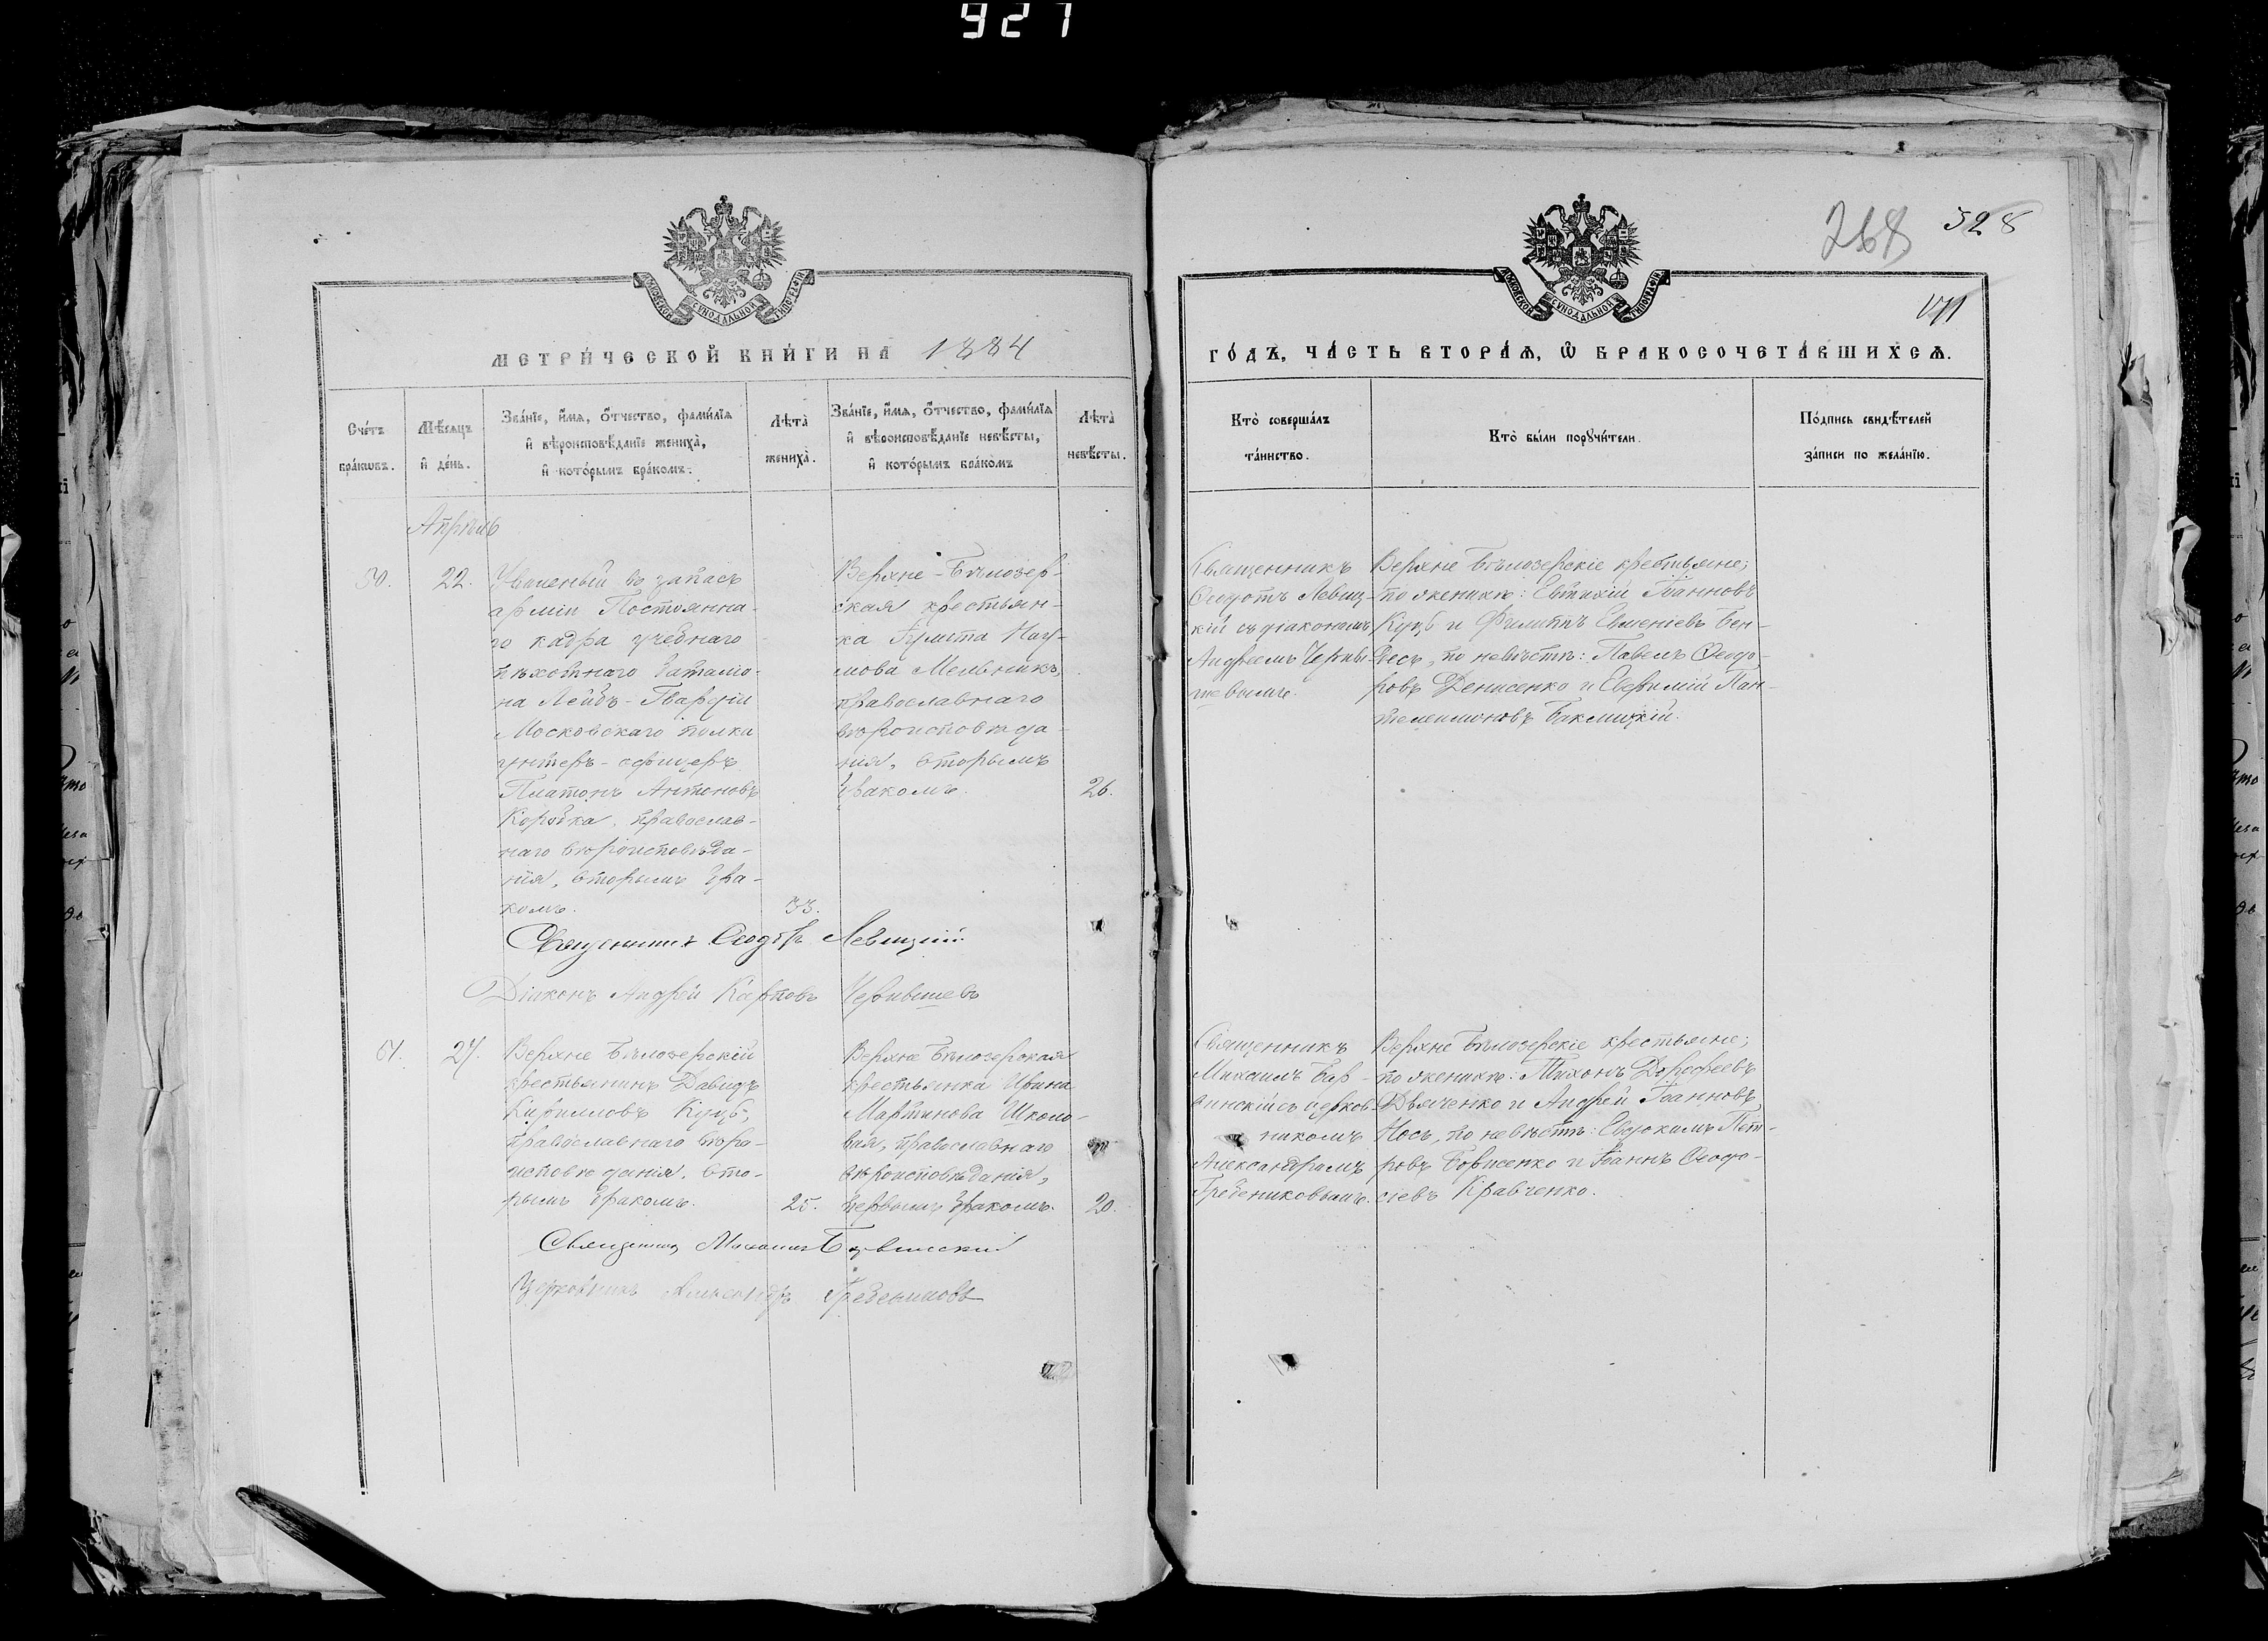 927
МОСКОВСКОЙ СѴНОДАЛЬНОЙ ТИПОГРАФІИ
МЕТРИ́ЧЕСКОЙ КНИ́ГИ НА 1884
Сче́тъ бра́кѡвъ.
Мѣ́сяцъ и҆ де́нь.
Зва́нїе, и҆́мѧ, ѻ҆́тчество, фами́лїѧ
и҆ вѣроисповѣ́данїе жениха̀,
и҆ кото́рымъ бра́комъ.
Лѣта̀ жениха̀.
Зва́нїе, и҆́мѧ, ѻ҆́тчество, фами́лїѧ
и҆ вѣроисповѣ́данїе невѣ́сты,
и҆ кото́рымъ бра́комъ
Лѣта̀ невѣ́сты.
Апрѣль
50.
22.
Уволеный въ запасъ
арміи Постоянна-
го кадра учебнаго
пѣхотнаго баталіо-
на Лейбъ-Гвардіи
Московскаго полка
унтеръ-офицеръ
Платонъ Антоновъ
Коробка, православ-
наго вѣроисповѣда-
нія, вторымъ бра-
комъ.
33.
Верхне-Бѣлозер-
ская крестьян-
ка Іулита Нау-
мова Мельникъ,
православнаго
вѣроисповѣда-
нія, вторымъ
бракомъ.
26.
Священникъ Ѳеодотъ Левицкій
Діаконъ Андрей Карповъ Чернышевъ
51.
27.
Верхне Бѣлозерскій
крестьянинъ Давидъ
Кирилловъ Куцъ,
православнаго вѣро-
исповѣданія, вто-
рымъ бракомъ.
25.
Верхне Бѣлозерская
крестьянка Ирина
Мартинова Школо-
вая, православнаго
вѣроисповѣданія,
первымъ бракомъ.
20.
Священникъ Михаилъ Барвинскій
Церковникъ Александръ Гребениковъ
268
328
МОСКОВСКОЙ СѴНОДАЛЬНОЙ ТИПОГРАФІИ
ГО́ДЪ, ЧА́СТЬ ВТОРА́Ѧ, Ѽ БРАКОСОЧЕТА́ВШИХСѦ.
Кто̀ соверша́лъ
та́инство.
Кто̀ бы́ли порꙋчи́тели.
По́дпись свидѣ́телей
за́писи по жела́нїю.
Священникъ
Ѳеодотъ Левиц-
кій съ діакономъ
Андреемъ Черны-
шевымъ.
Верхне Бѣлозерскіе крестьяне;
по женихѣ: Евтихій Іоанновъ
Куцъ и Филиппъ Евменіевъ Бен-
десъ, по невѣстѣ: Павелъ Ѳеодо-
ровъ Денисенко и Евфимій Пан-
телеимоновъ Баклицкій.
Священникъ
Михаилъ Бар-
винскій съ церков-
никомъ
Александромъ
Гребениковымъ.
Верхне Бѣлозерскіе крестьяне;
по женихѣ: Тихонъ Дорофеевъ
Дьяченко и Андрей Іоанновъ
Носъ, по невѣстѣ: Евдокимъ Пет-
ровъ Борисенко и Іоаннъ Ѳеодо-
сіевъ Кравченко.